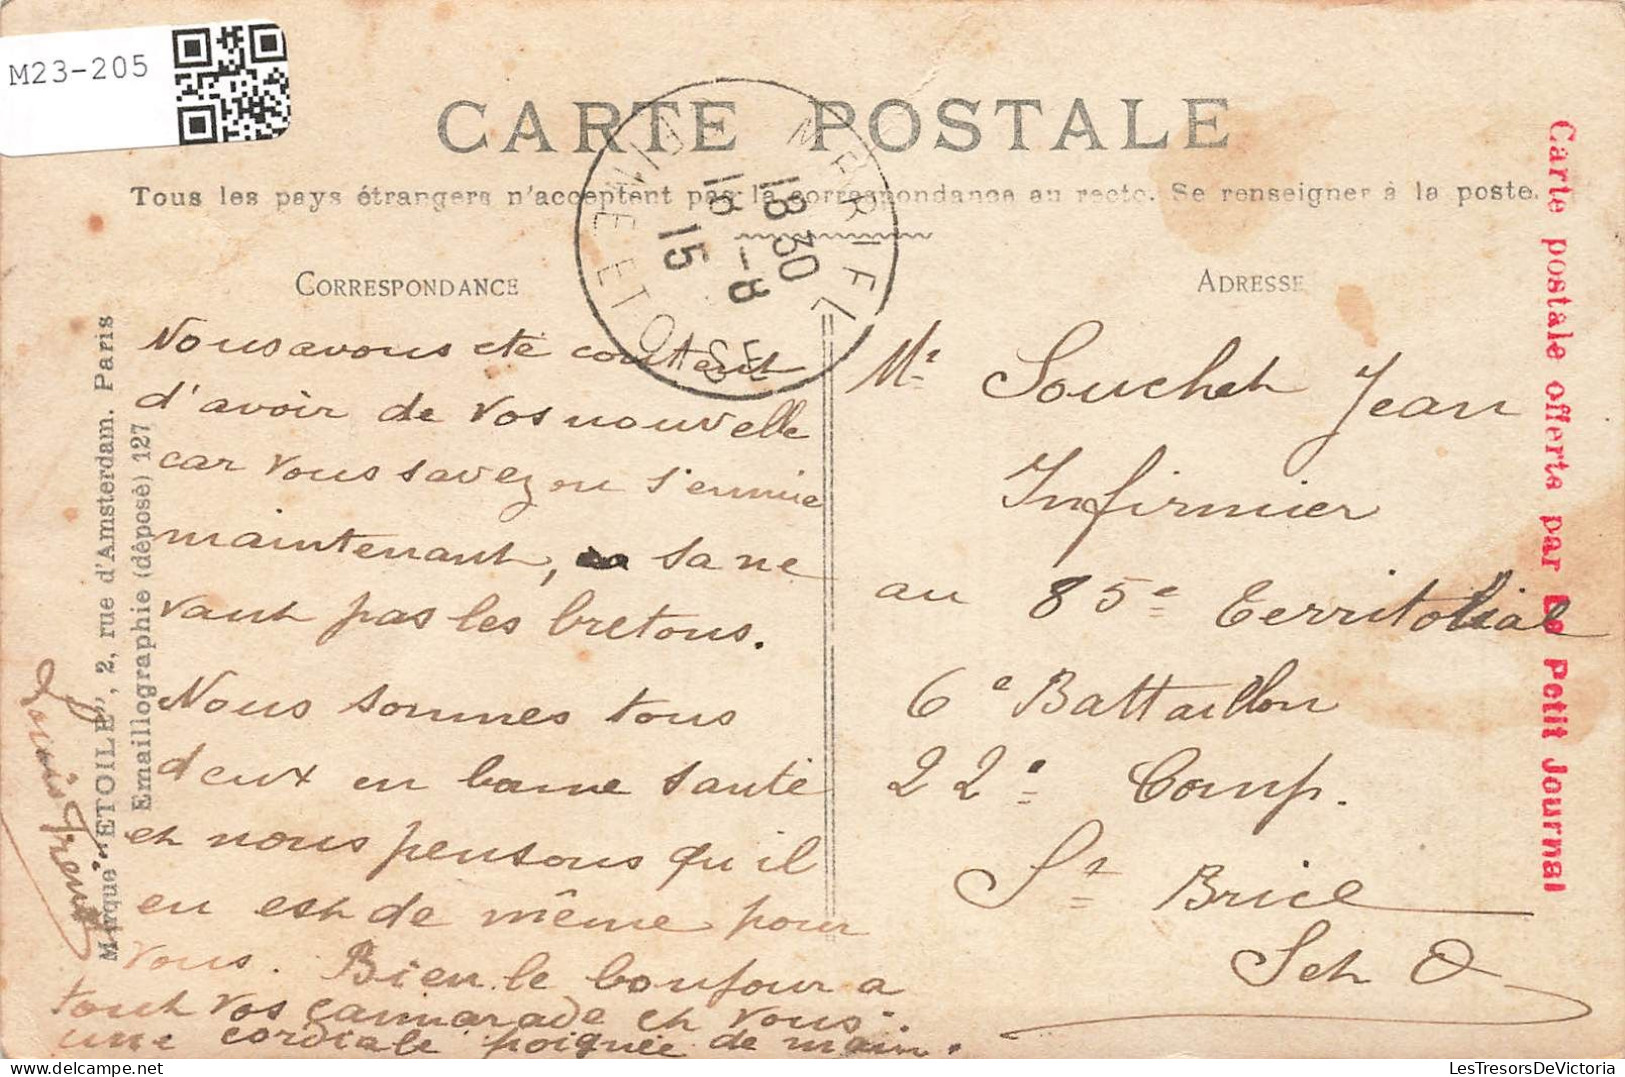 M23-205
CARTE POSTALE
Tous les pays étrangers n'acceptent pas la correspondance au recto. Se renseigner à la poste.
18 30
18 -8
15
SEINE ET OISE
CORRESPONDANCE
Nous avons été content
d'avoir de vos nouvelle
car vous savez on s'ennuie
maintenant, sa ne
vaut pas les bretons.
Nous sommes tous
deux en bonne santé
et nous pensons qu'il
en est de même pour
vous. Bien le bonjour a
tout vos camarade et vous.
une cordiale poignée de main.
ADRESSE
Mr Souchet Jean
Infirmier
au 85e Territorial
6e Battaillon
22e Comp.
St Brice
S et O
Marque "ETOILE", 2, rue d'Amsterdam. Paris
Emaillographie (déposé) 127
Carte postale offerte par Le Petit Journal
LesTresorsDeVictoria